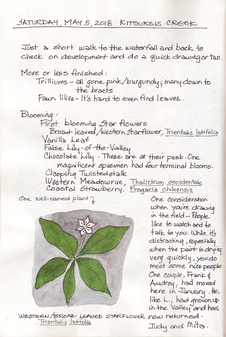 SATURDAY, MAY 5, 2018 KITSUCKSIS CREEK
Just a short walk to the waterfall and back to
check on development and do a quick drawing or two.
More or less finished:
Trilliums - all gone pink/burgundy; many down to
the bracts
Fawn lilies - It's hard to even find leaves.
Blooming:
First blooming Star flowers
Broad-leaved/Western Starflower, Trientalis latifolia
Vanilla Leaf
False Lily-of-the-Valley
Chocolate Lily - These are at their peak. One
magnificent specimen had four terminal blooms.
Clasping Twistedstalk
Western Meadowrue, Thalictrum occidentale
Coastal Strawberry, Fragaria chiloensis
One well-named plant
One consideration
when you're drawing
in the field - People
like to watch and to
talk to you. While it's
distracting, especially
when the paint is drying
very quickly, you do
meet some nice people
One couple, Frank &
Audrey, had moved
here in January. He,
like L., had grown up
in the Valley and has
now returned.
Judy and Mits.
WESTERN/BROAD-LEAVED STARFLOWER
Trientalis latifolia